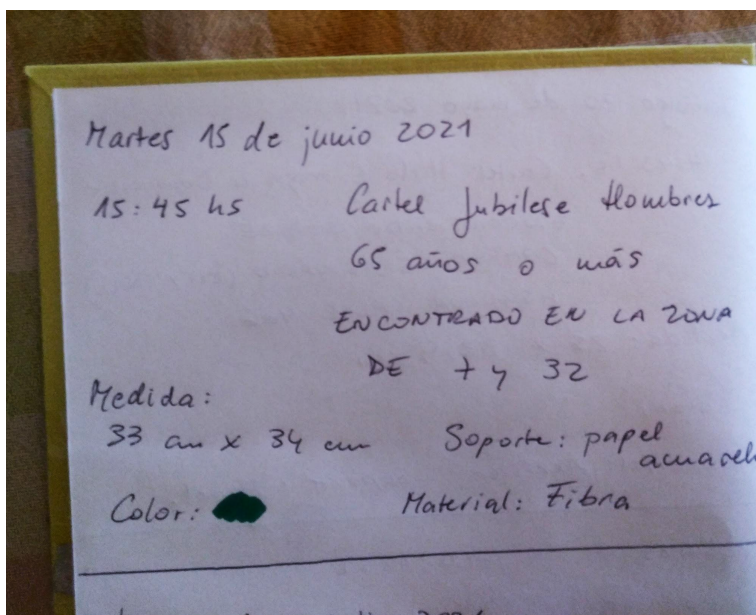 Martes 15 de junio 2021
15:45 hs Cartel Jubilese Hombres
65 años o más
ENCONTRADO EN LA ZONA
DE 7 y 32
Medida:
33 cm x 34 cm Soporte: papel
acuarel
Color: Material: Fibra